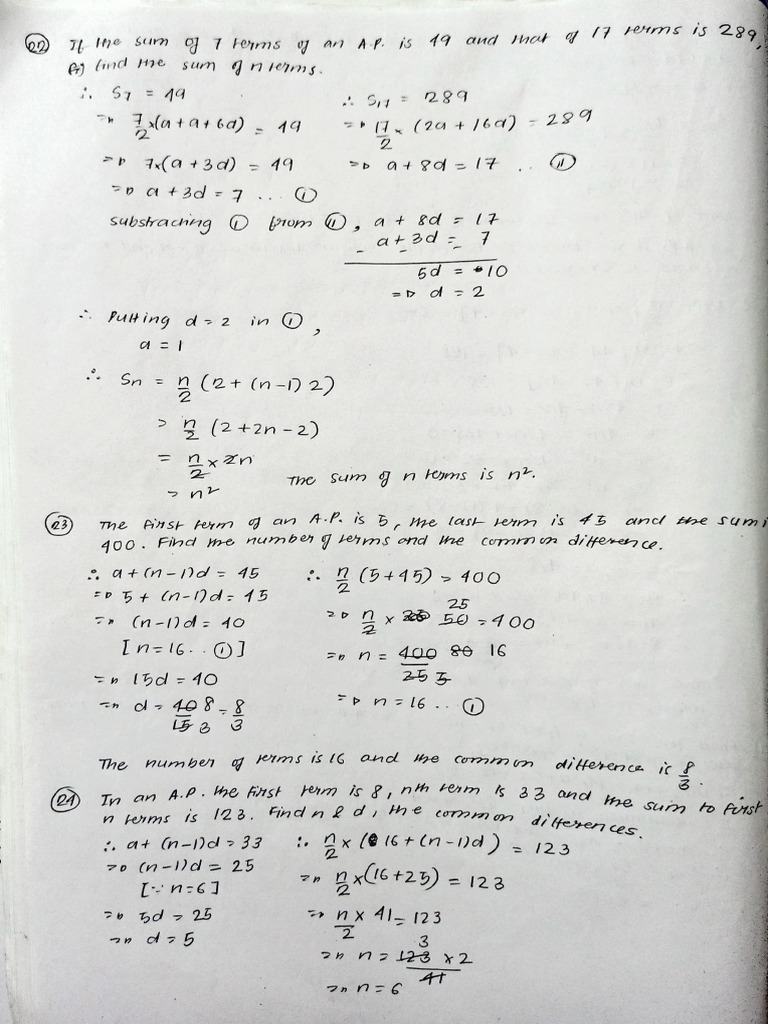 (22) If the sum of 7 terms of an A.P. is 49 and that of 17 terms is 289,
find the sum of n terms.
∴ S7 = 49
=> 7/2 x(a + a + 6d) = 49
=> 7x(a + 3d) = 49
=> a + 3d = 7 ... (i)
∴ S17 = 289
=> 17/2 x (2a + 16d) = 289
=> a + 8d = 17 .. (ii)
substracting (i) from (ii), a + 8d = 17
a + 3d = 7
- - -
5d = 10
=> d = 2
∴ Putting d = 2 in (i),
a = 1
∴ Sn = n/2 (2 + (n-1) 2)
= n/2 (2 + 2n - 2)
= n/2 x 2n
= n²
The sum of n terms is n².
(23) The first term of an A.P. is 5, the last term is 45 and the sum i
400. Find the number of terms and the common difference.
∴ a + (n-1)d = 45
=> 5 + (n-1)d = 45
=> (n-1)d = 40
[n = 16 .. (i)]
=> 15d = 40
=> d = 40/15 8/3 = 8/3
∴ n/2 (5 + 45) = 400
=> n/2 x 50 25 = 400
=> n = 400/25 80/5 16
=> n = 16 .. (i)
The number of terms is 16 and the common difference is 8/3.
(24) In an A.P. the first term is 8, nth term is 33 and the sum to first
n terms is 123. Find n & d, the common differences.
∴ a + (n-1)d = 33
=> (n-1)d = 25
[∵ n = 6]
=> 5d = 25
=> d = 5
∴ n/2 x (16 + (n-1)d) = 123
=> n/2 x (16 + 25) = 123
=> n/2 x 41 = 123
=> n = 123 3 x 2 / 41
=> n = 6